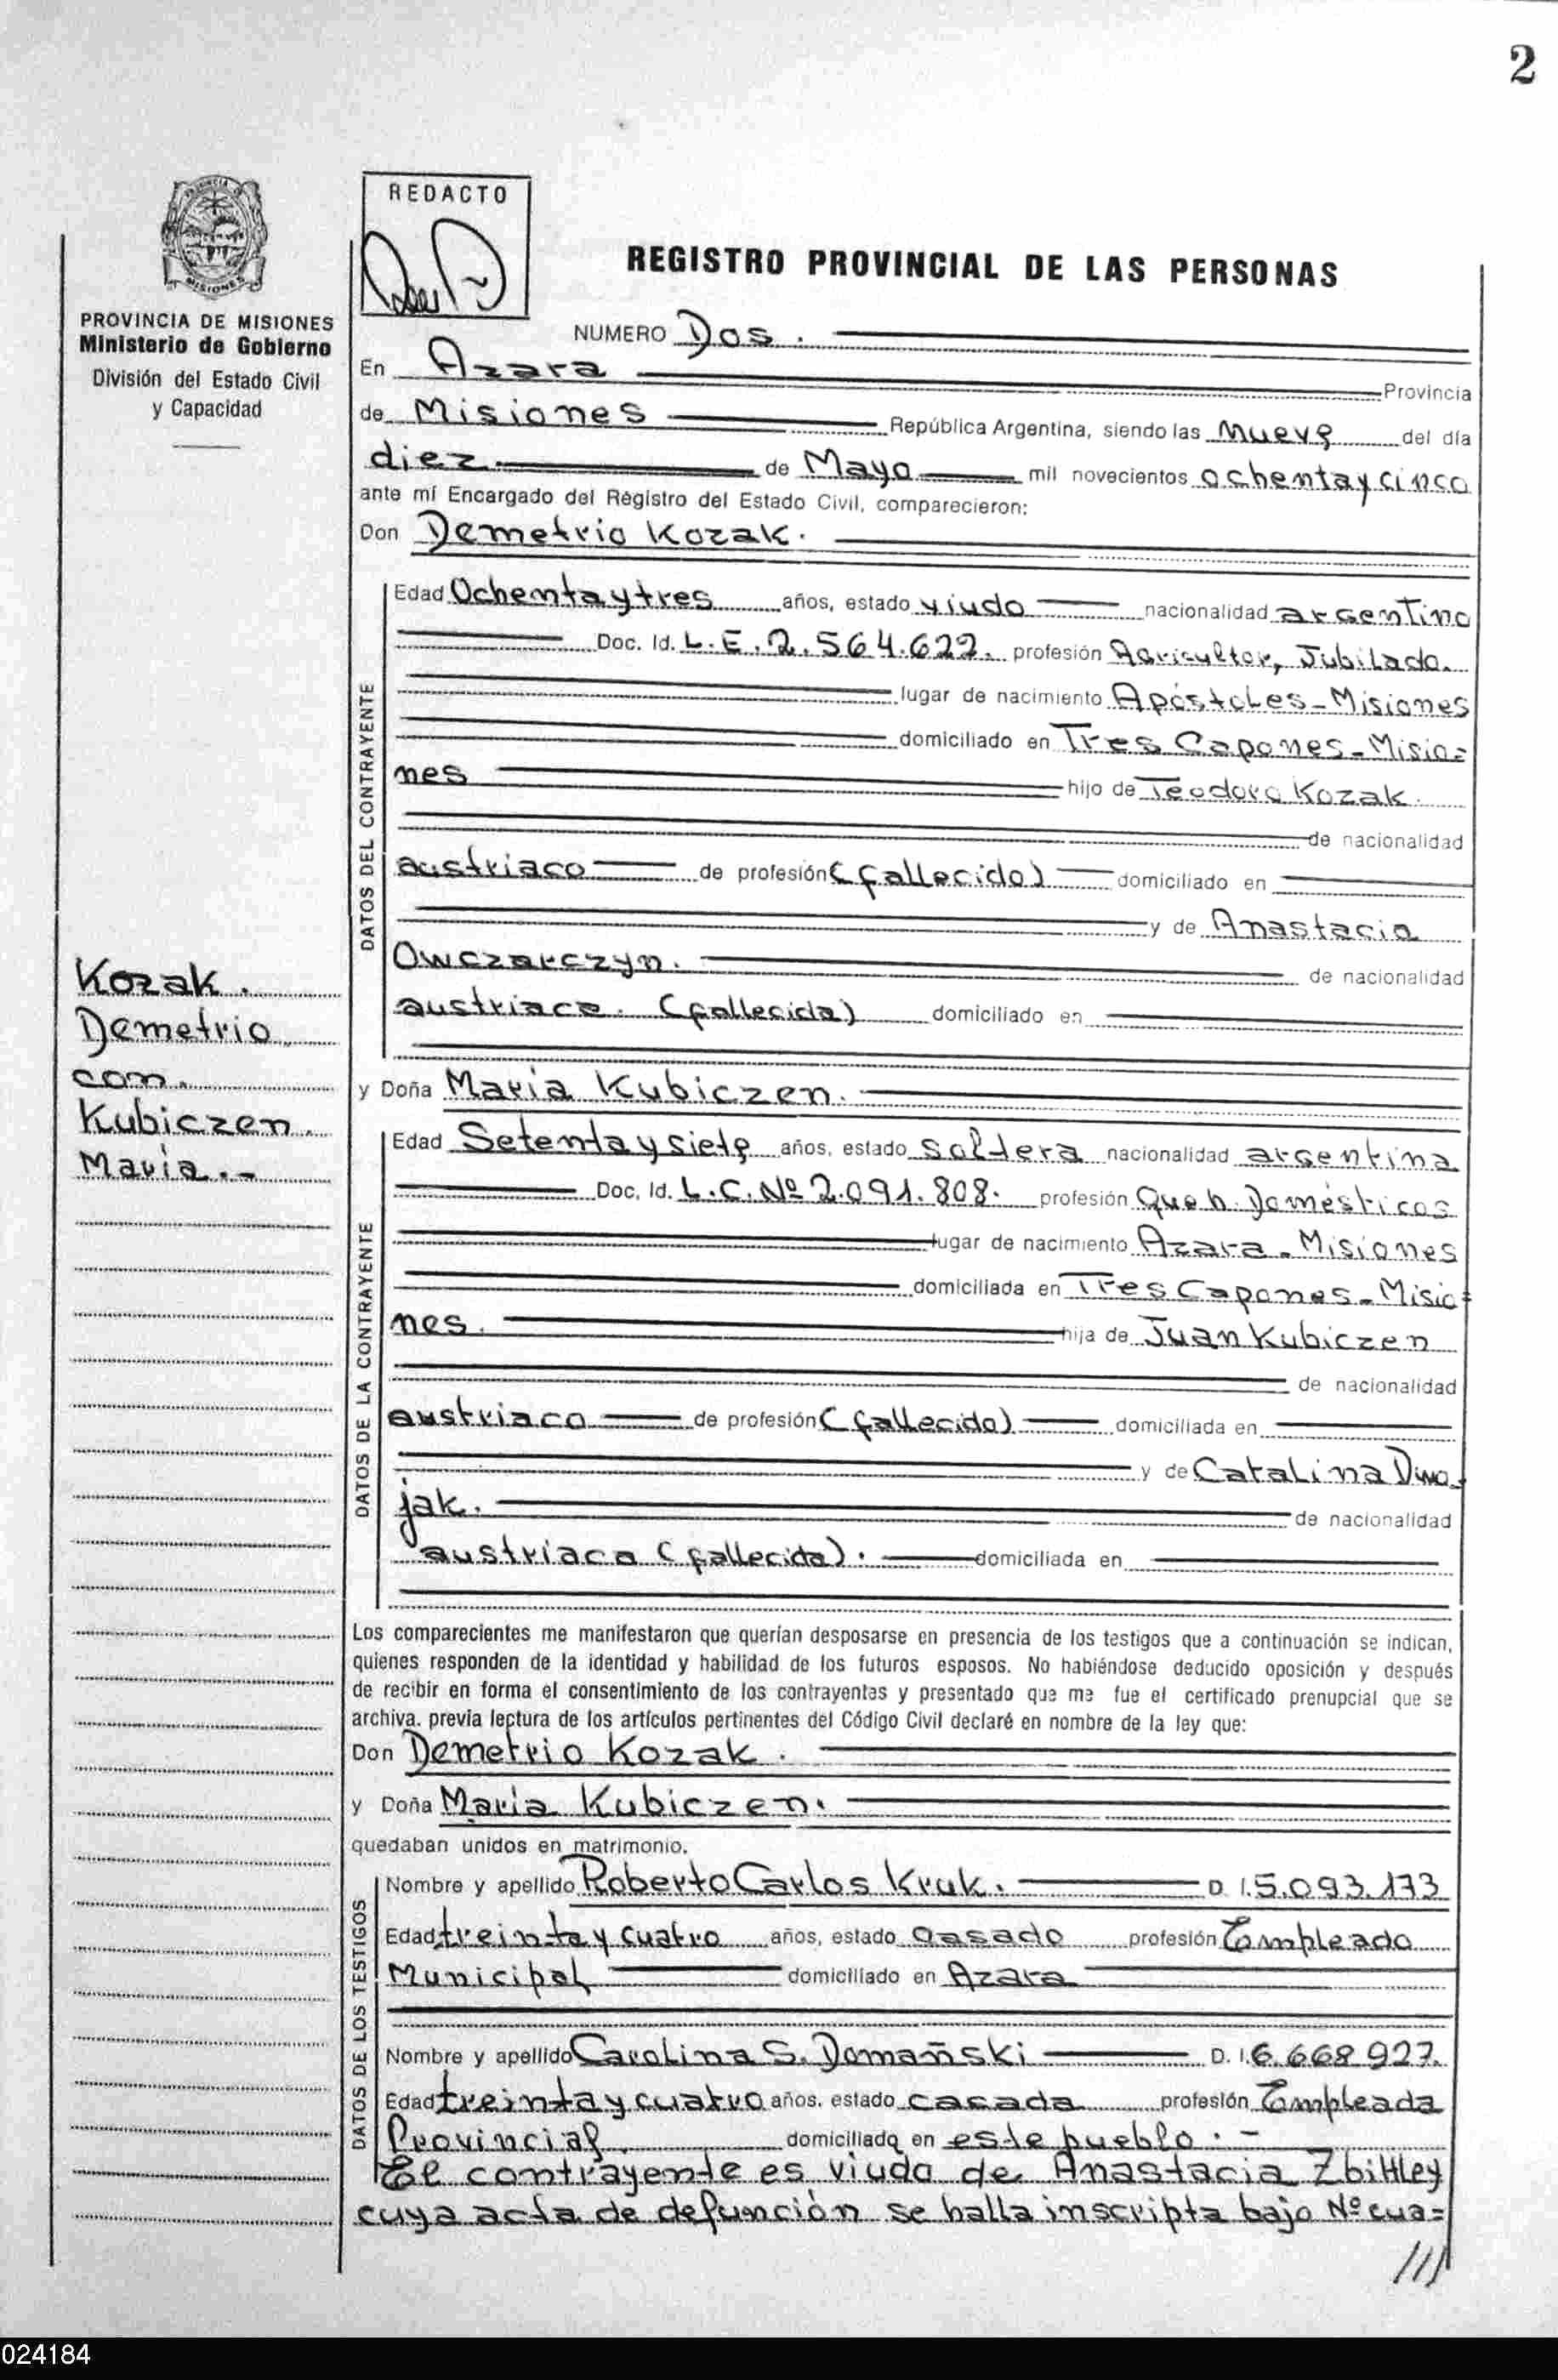 2
REDACTO
PROVINCIA DE MISIONES
Ministerio de Gobierno
División del Estado Civil
y Capacidad
REGISTRO PROVINCIAL DE LAS PERSONAS
NUMERO Dos.
En Azara Provincia
de Misiones República Argentina, siendo las Nueve del día
diez de Mayo mil novecientos ochenta y cinco
ante mí Encargado del Registro del Estado Civil, comparecieron:
Don Demetrio Kozak.
DATOS DEL CONTRAYENTE
Edad Ochenta y tres años, estado viudo nacionalidad argentino
Doc. Id. L.E.2.564.622. profesión Agricultor, Jubilado.
lugar de nacimiento Apóstoles-Misiones
domiciliado en Tres Capones-Misio=
nes hijo de Teodoro Kozak.
de nacionalidad
austriaco de profesión (fallecido) domiciliado en
y de Anastacia
Owczarczyn. de nacionalidad
austriaca. (fallecida) domiciliado en
Kozak.
Demetrio
con
Kubiczen.
María.-
y Doña María Kubiczen.
DATOS DE LA CONTRAYENTE
Edad Setenta y siete años, estado soltera nacionalidad argentina
Doc. Id. L.C.Nº 2.091.808. profesión Queh. Domésticos
lugar de nacimiento Azara-Misiones
domiciliada en Tres Capones-Misio=
nes. hija de Juan Kubiczen
de nacionalidad
austriaco de profesión (fallecido) domiciliada en
y de Catalina
jak. de nacionalidad
austriaca (fallecida). domiciliada en
Los comparecientes me manifestaron que querían desposarse en presencia de los testigos que a continuación se indican,
quienes responden de la identidad y habilidad de los futuros esposos. No habiéndose deducido oposición y después
de recibir en forma el consentimiento de los contrayentes y presentado que me fue el certificado prenupcial que se
archiva, previa lectura de los artículos pertinentes del Código Civil declaré en nombre de la ley que:
Don Demetrio Kozak.
y Doña María Kubiczen.
quedaban unidos en matrimonio.
DATOS DE LOS TESTIGOS
Nombre y apellido Roberto Carlos Kruk. D. I. 5.093.173
Edad treinta y cuatro años, estado casado profesión Empleado
Municipal domiciliado en Azara
Nombre y apellido Carolina S. Domañski D. I. 6.668.927.
Edad treinta y cuatro años, estado casada profesión Empleada
Provincial domiciliada en este pueblo.-
El contrayente es viudo de Anastacia Zbittley
cuya acta de defunción se halla inscripta bajo Nº cua=
///
024184